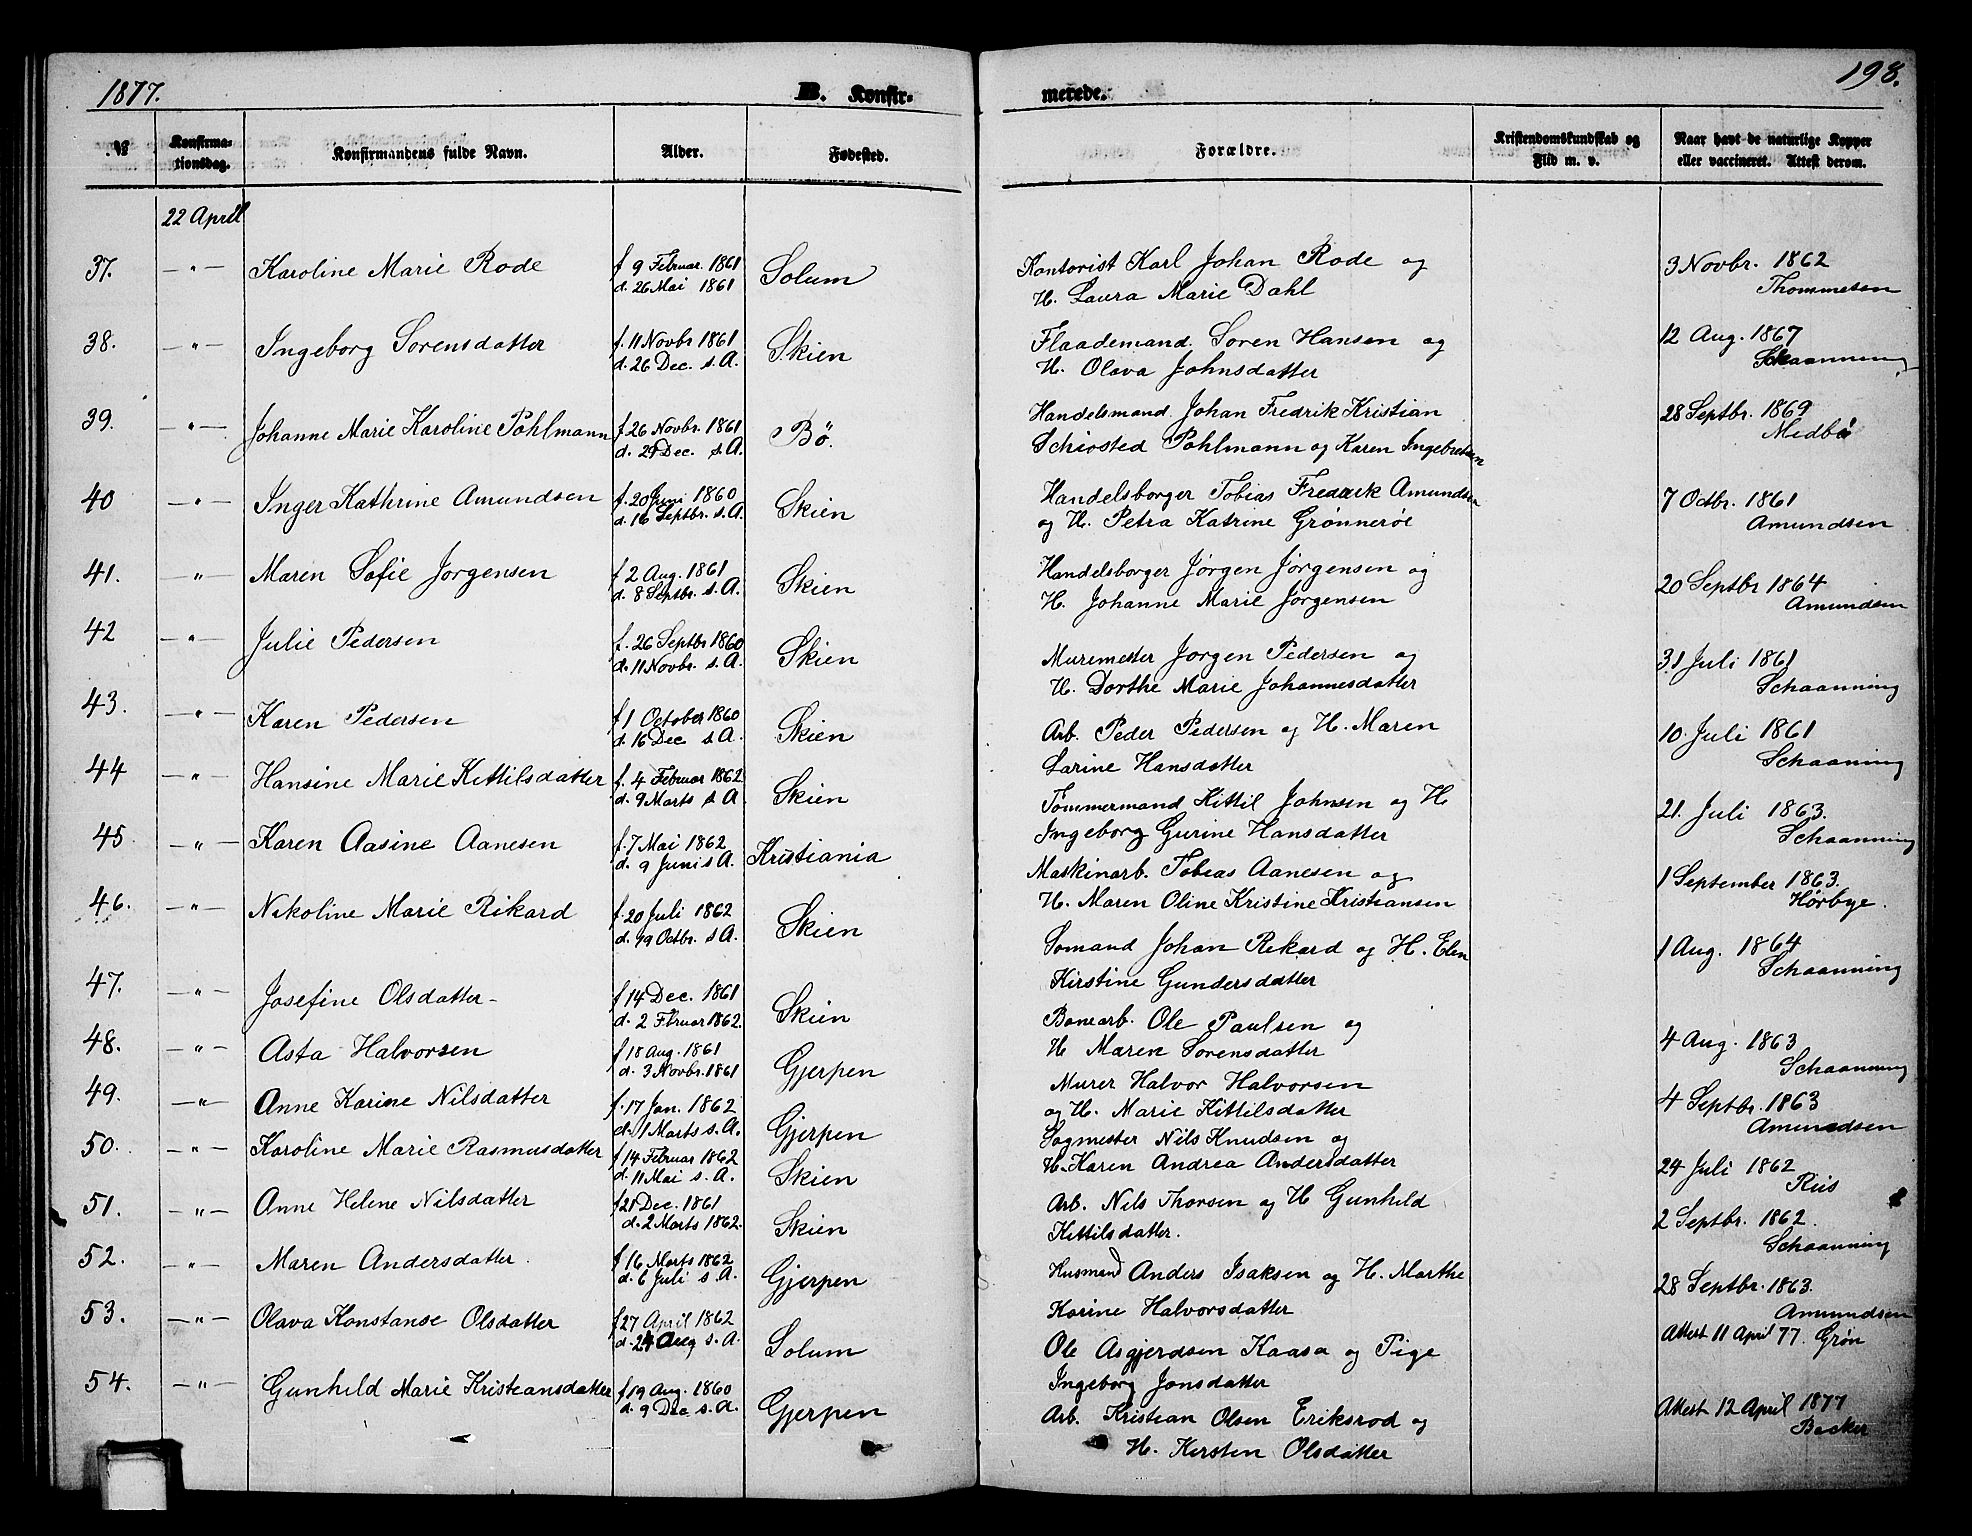 1877.
B. Konfir-
merede.
198.
№
Konfirma-
tionsdag.
Konfirmandens fulde Navn.
Alder.
Fødested.
Forældre.
Kristendomskundskab og
Flid m. v.
Naar havt de naturlige Kopper
eller vaccineret. Attest derom.
22 April
37. —"— Karoline Marie Rode f 9 Februar 1861 Solum Kontorist Karl Johan Rode og 3 Novbr. 1862
d. 26 Mai 1861 H. Laura Marie Dahl Thommesen
38. —"— Ingeborg Sørensdatter f. 11 Novbr 1861 Skien Flaademand Søren Hansen og 12 Aug. 1867
d. 26 Dec. s. A. H. Olava Johnsdatter Schaanning
39. —"— Johanne Marie Karoline Pøhlmann f 26 Novbr. 1861 Bö. Handelsmand Johan Fredrik Kristian 28 Septbr. 1869
d. 29 Dec. s A. Schiøsted Pøhlmann og Karen Ingebretsen Midbø
40 —"— Inger Kathrine Amundsen f. 20 Juni 1860 Skien Handelsborger Tobias Fredrik Amundsen 7 Octbr. 1861
d. 16 Septbr. s. A. og H. Petra Katrine Grønnerøe Amundsen
41. —"— Maren Sofie Jørgensen f 2 Aug. 1861 Skien Handelsborger Jørgen Jørgensen og 20 Septbr 1864
d. 8 Septbr. s. A. H. Johanne Marie Jørgensen Amundsen
42 —"— Julie Pedersen f. 26 Septbr 1860 Skien Muremester Jørgen Pedersen og 31 Juli 1861
d. 11 Novbr. s. A. H. Dorthe Marie Johannesdatter Schaanning
43. —"— Karen Pedersen f 1 October 1860 Skien Arb. Peder Pedersen og H. Maren 10. Juli 1861
d. 16 Dec s A. Larine Hansdatter Schaanning
44 —"— Hansine Marie Kittilsdatter f. 4 Februar 1862 Skien Tømmermand Kittil Johnsen og H 21. Juli 1863.
d. 9 Marts s A. Ingeborg Gurine Hansdatter Schaanning
45 —"— Karen Aasine Aanesen f. 7 Mai 1862 Kristiania Maskinarb. Tobias Aanesen og 1 September 1863.
d. 9 Juni s A. H. Maren Oline Kristine Kristiansen Hørbye.
46. —"— Nikoline Marie Rikard f. 20 Juli 1862 Skien Sømand Johan Rikard og H. Elen 1 Aug. 1864
d. 19 Octbr. s A. Kirstine Gundersdatter Schaanning
47. —"— Josefine Olsdatter f 14 Dec. 1861 Skien Banearb. Ole Paulsen og 4 Aug. 1863
d. 2 Februar 1862. H Maren Sørensdatter Schaanning
48. —"— Asta Halvorsen f 18 Aug. 1861 Gjerpen Murer Halvor Halvorsen 4 Septbr. 1863
d. 3 Novbr. 1861 og H. Marie Kittilsdatter Amundsen
49. —"— Anne Karine Nilsdatter f. 17 Jan. 1862 Gjerpen Sagmester Nils Knudsen og 24 Juli 1862
d. 1 Marts s. A. H. Karen Andrea Andersdatter Riis
50. —"— Karoline Marie Rasmusdatter f 14 Februar 1862 Skien
d. 11 Mai s. A.
51. —"— Anne Helene Nilsdatter f 21 Dec. 1861 Skien Arb. Nils Thorsen og H Gunhild 2 Septbr. 1862.
d. 2 Marts 1862. Kittilsdatter. Schaanning
52. —"— Maren Andersdatter f 16 Marts 1862 Gjerpen Husmand Anders Isaksen og H. Marthe 28 Septbr. 1863.
d. 6 Juli s A. Karine Halvorsdatter Amundsen
53. —"— Olava Konstanse Olsdatter f 27 April 1862 Solum Ole Asgjerdsen Kaasa og Pige Attest 11 April 77. Grøn
d. 24 Aug s. A. Ingeborg Jonsdatter
54. —"— Gunhild Marie Kristiansdatter f 19 Aug. 1860 Gjerpen Arb. Kristian Olsen Eriksrød og Attest 12 April 1877
d. 9 Dec s. A. H. Kirsten Olsdatter Becker